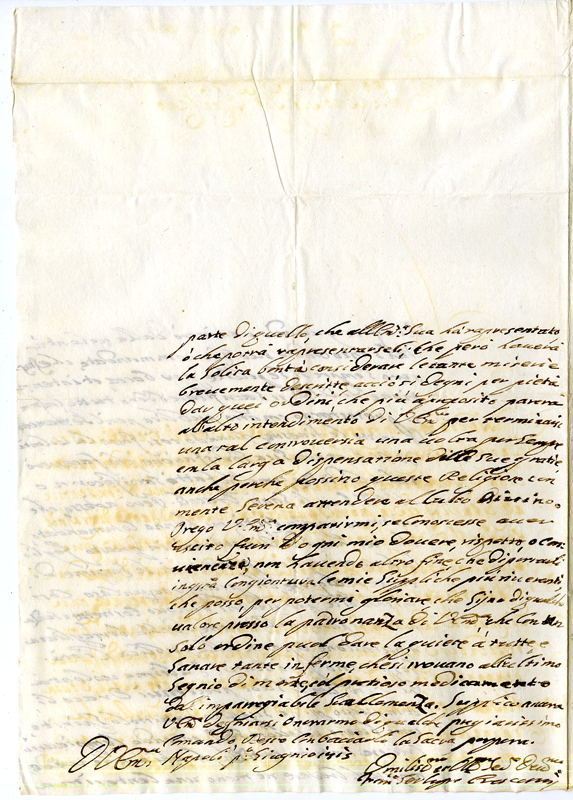 parte di quello, che all'Em.ª Sua hà rapresentato
ò che potrà rapresentarseli; che però haverà
la solita bontà considerare le tante miserie
brevemente descritte acciò si degni per pietà
dar quei ordini, che più à proposito pareva
all'alto intendimento di V. Em.ª per terminarsi
una tal controversia una volta per sempre
en la larga dispensatione delle sue gratie
anche perche possino queste Religiose con
mente serena attendere al culto Divino.
Prego V. Em.ª compatirmi, se conoscesse aver
uscito fuori d'ogni mio dovere, rispetto, o con
venienza, non havendo altro fine che di porvi
congiontuva le mie suppliche più riverenti
che posso, per potermi gloriare che sijno di qualche
valore presso la padronanza di V. Em.ª che con un
solo ordine puol dare la quiete à tutte e
sanare tante inferme che si trovano all'ultimo
segnio di mente, col pretioso medicamento
del imparegiabile sua clemenza, supplico ancora
V. Em.ª degniarsi onorarmi di qualche pregiatissimo
comando e resto baciandoli la sacra porpora.
Di V. Em.ª
Napoli p.º Giugnio 1715